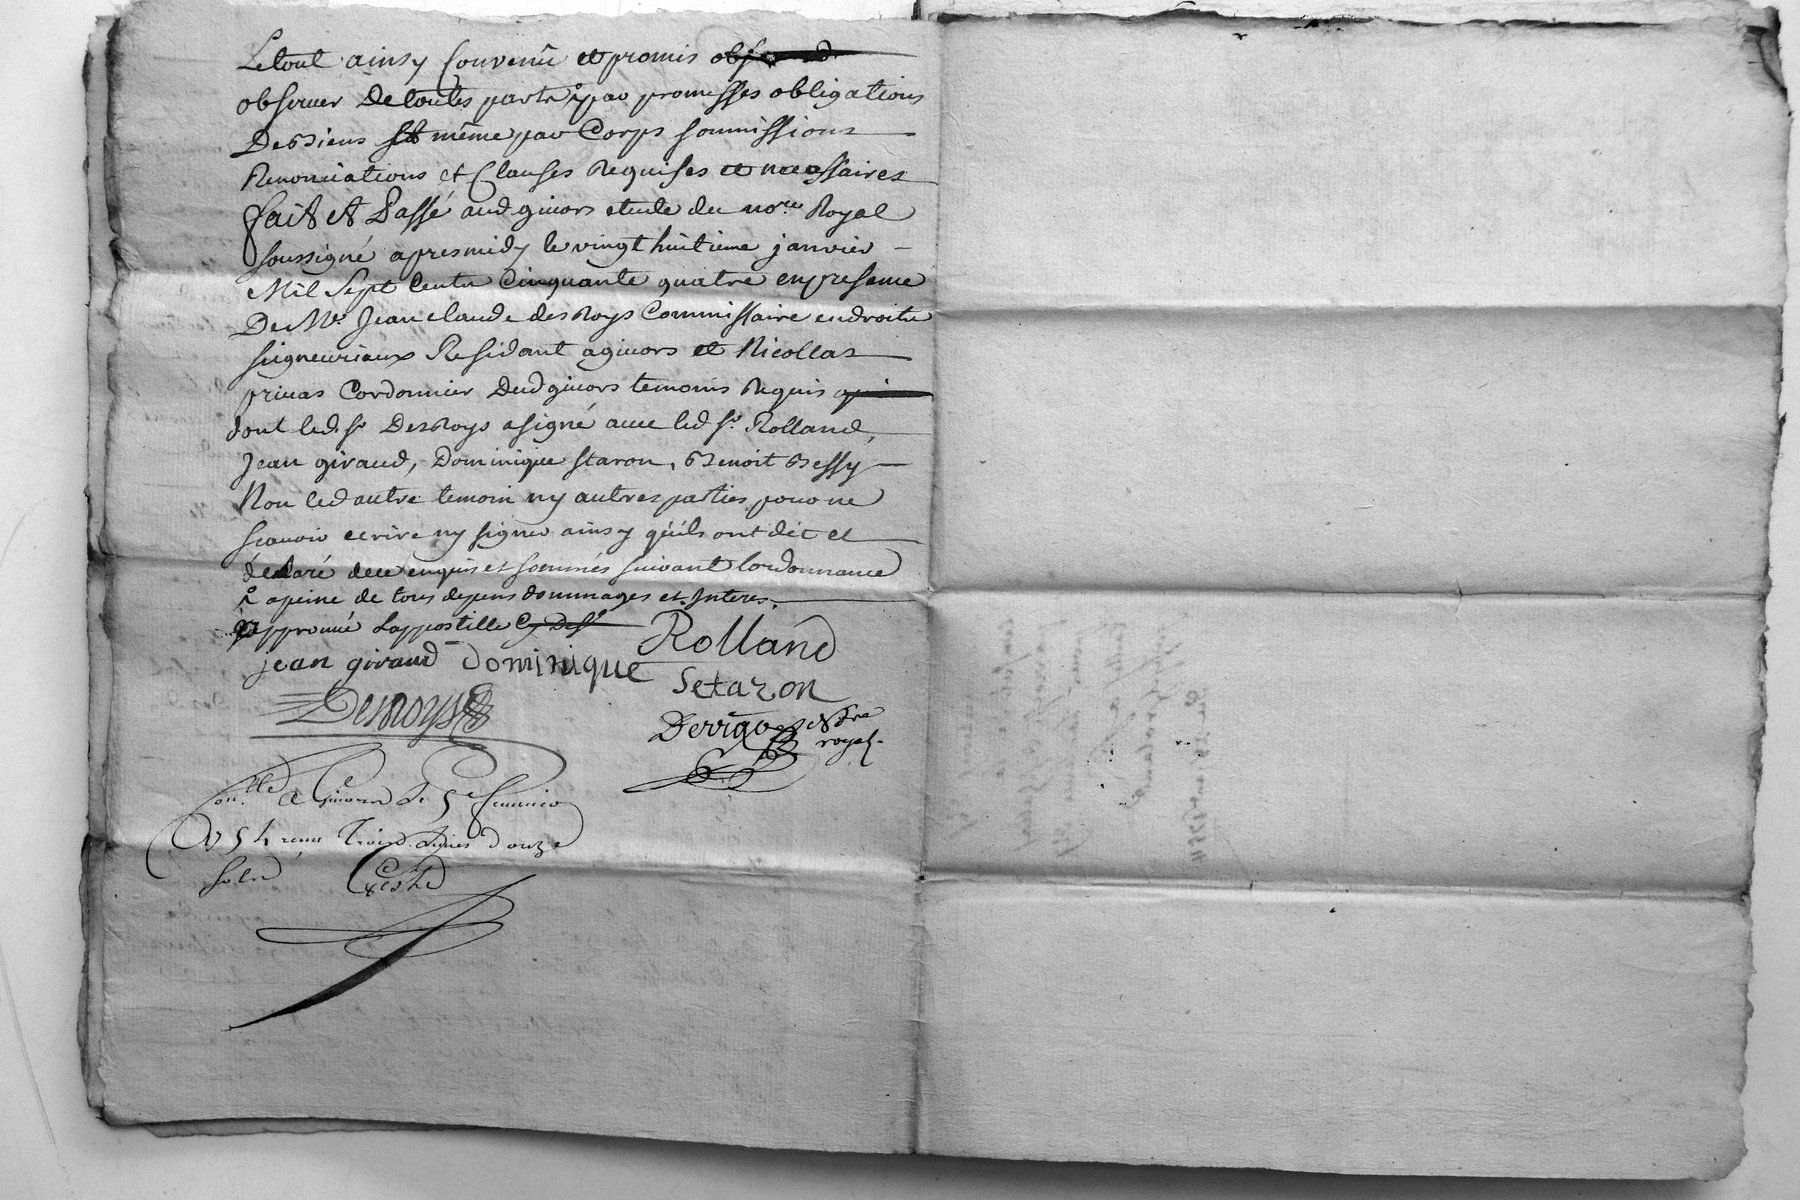 Le tout ainsy Convenû et promis
observer de toutes parts par promesses obligations
De Biens et même par Corps soumissions
Renonciations et Clauses Requises et necessaires
fait et Passé aud givors etude du no.re Royal
soussigné apres midy le vingt huitieme janvier
Mil Sept Cents Cinquante quatre en presence
De Me. Jean Claude des Roys Commissaire en droits
seigneuriaux Residant a givors et Nicollas
privas Cordonnier Dud givors temoins Requis
dont led. sr. DesRoys a signé avec led sr. Rolland,
Jean giraud, Dominique staron, Benoit Bessy
Non led autre temoin ny autres parties pour ne
scavoir ecrire ny signer ainsy qu'ils ont dit et
declaré de ce enquis et sommés suivant l'ordonnance
a peine de tous depens dommages et Interes.
approuvé L'appostille
jean giraud Dominique Rolland
Setaron
Desroys
royal.
Con.lle a Givors le
1754 reçu Trois Livres douze
sols